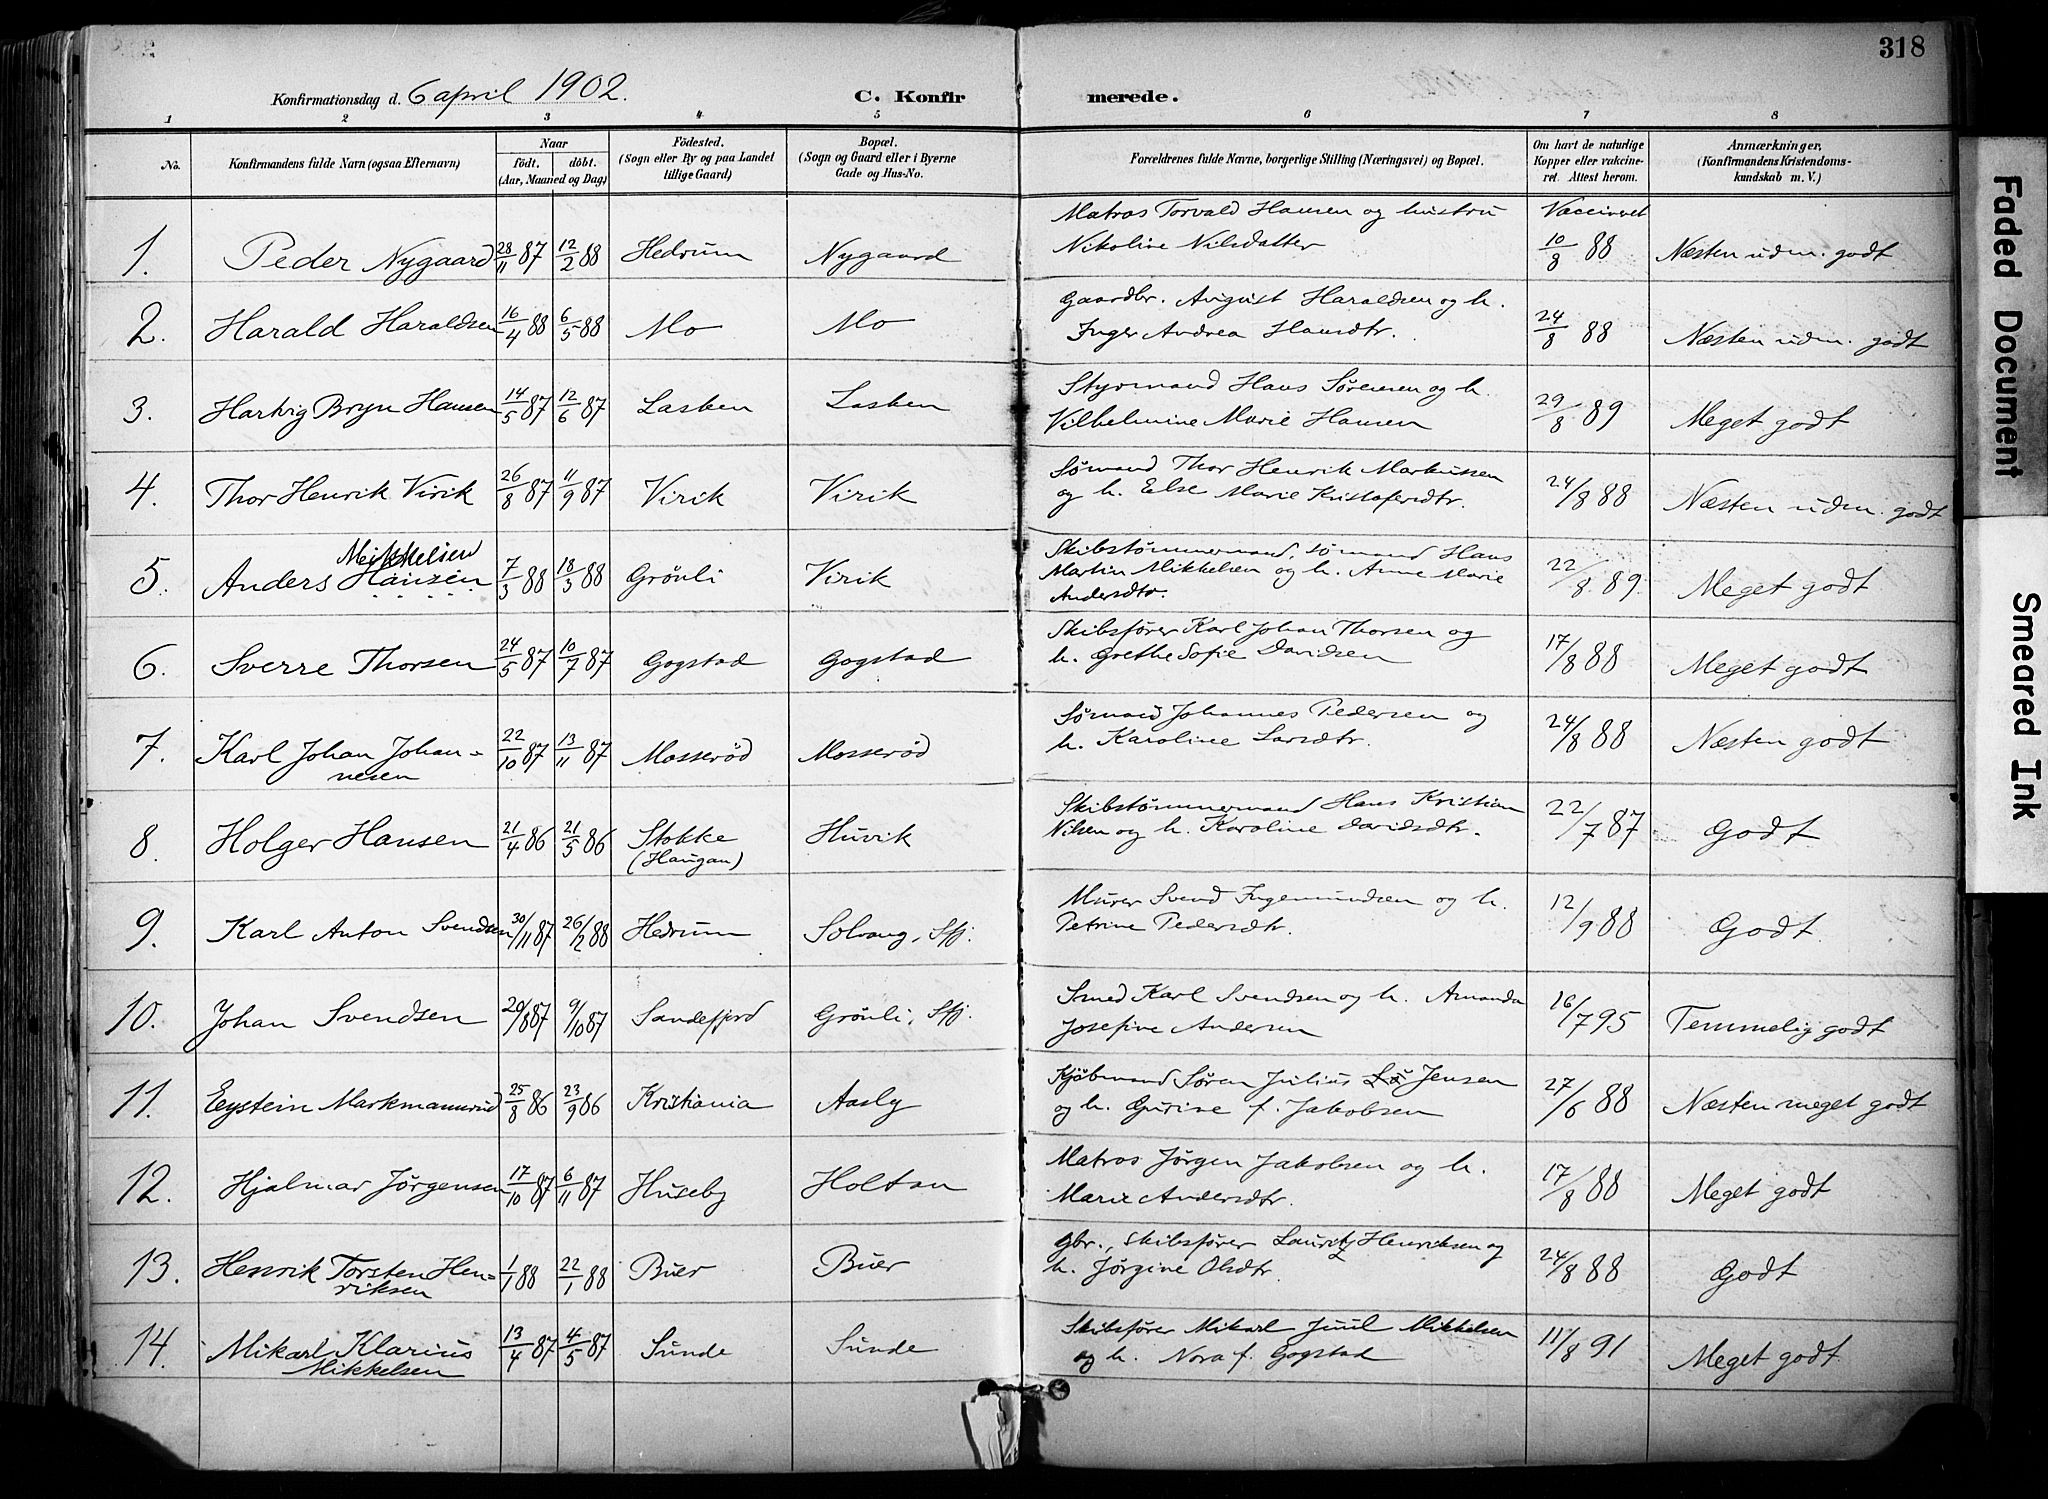 318
Konfirmationsdag d. 6 april 1902. C. Konfirmerede.
1 2 3 4 5 6 7 8
No. Konfirmandens fulde Narn (ogsaa Efternavn) Naar födt. döbt. (Aar, Maaned og Dag) Födested. (Sogn eller By og paa Landet tillige Gaard) Bopæl. (Sogn og Gaard eller i Byerne Gade og Hus-No. Forældrenes fulde Navne, borgerlige Stilling (Næringsvei) og Bopæl. Om havt de naturlige Kopper eller vakcineret. Attest herom. Anmærkninger, (Konfirmandens Kristendomskundskab m. V.)
1. Peder Nygaard 28/11 87 12/2 88 Hedrum Nygaard Matros Torvald Hansen og hustru Nikoline Nilsdatter Vaccineret 10/8 88 Næsten udm. godt
2. Harald Haraldsen 16/4 88 6/5 88 Mo Mo Gaardbr. August Haraldsen og h. Inger Andrea Hansdtr. 24/8 88 Næsten udm. godt
3. Hartvig Bryn Hansen 14/5 87 12/6 87 Lasken Lasken Styrmand Hans Sørensen og h. Vilhelmine Marie Hansen 29/8 89 Meget godt
4. Thor Henrik Virik 26/8 87 11/9 87 Virik Virik Sømand Thor Henrik Markussen og h. Else Marie Kristofersdtr. 24/8 88 Næsten udm. godt
5. Anders Hansen Mikkelsen 7/3 88 18/3 88 Grönli Virik Skibstømmermand, sømand Hans Martin Mikkelsen og h. Anne Marie Andersdtr. 22/8 89. Meget godt
6. Sverre Thorsen 24/5 87 10/7 87 Gogstad Gogstad Skibsfører Karl Johan Thorsen og h. Grethe Sofie Davidsen 17/8 88 Meget godt
7. Karl Johan Johannesen 22/10 87 13/11 87 Mosserød Mosserød Sømand Johannes Pedersen og h. Karoline Larsdtr. 24/8 88 Næsten godt
8. Holger Hansen 21/4 86 21/5 86 Stokke (Haugan) Huvik Skibstømmermand Hans Kristian Nilsen og h. Karoline Davidsdtr. 22/7 87 Godt
9. Karl Anton Svendsen 30/11 87 26/2 88 Hedrum Solvang, Sfj. Murer Svend Ingemundsen og h. Petrine Pedersdtr. 12/9 88 Godt.
10. Johan Svendsen 20/8 87 9/10 87 Sandefjord Grönli, Sfj. Smed Karl Svendsen og h. Amanda Josefine Andersen 16/7 95 Temmelig godt
11. Eystein Markmannrud 25/8 86 23/9 86 Kristiania Aasly Kjøbmand Søren Julius Jensen og h. Gurine f. Jakobsen 27/6 88 Næsten meget godt
12. Hjalmar Jørgensen 17/10 87 6/11 87 Huseby Holtan Matros Jørgen Jakobsen og h. Marie Andersdtr. 17/8 88 Meget godt
13. Henrik Torsten Henriksen 1/1 88 22/1 88 Buer Buer Gbr., skibsfører Lauritz Henriksen og h. Jørgine Olsdtr. 24/8 88 Godt
14. Mikael Klarius Mikkelsen 13/4 87 4/5 87 Sunde Sunde Skibsfører Mikael Juul Mikkelsen og h. Nora f. Gogstad 11/8 91 Meget godt
Faded Document
Smeared Ink